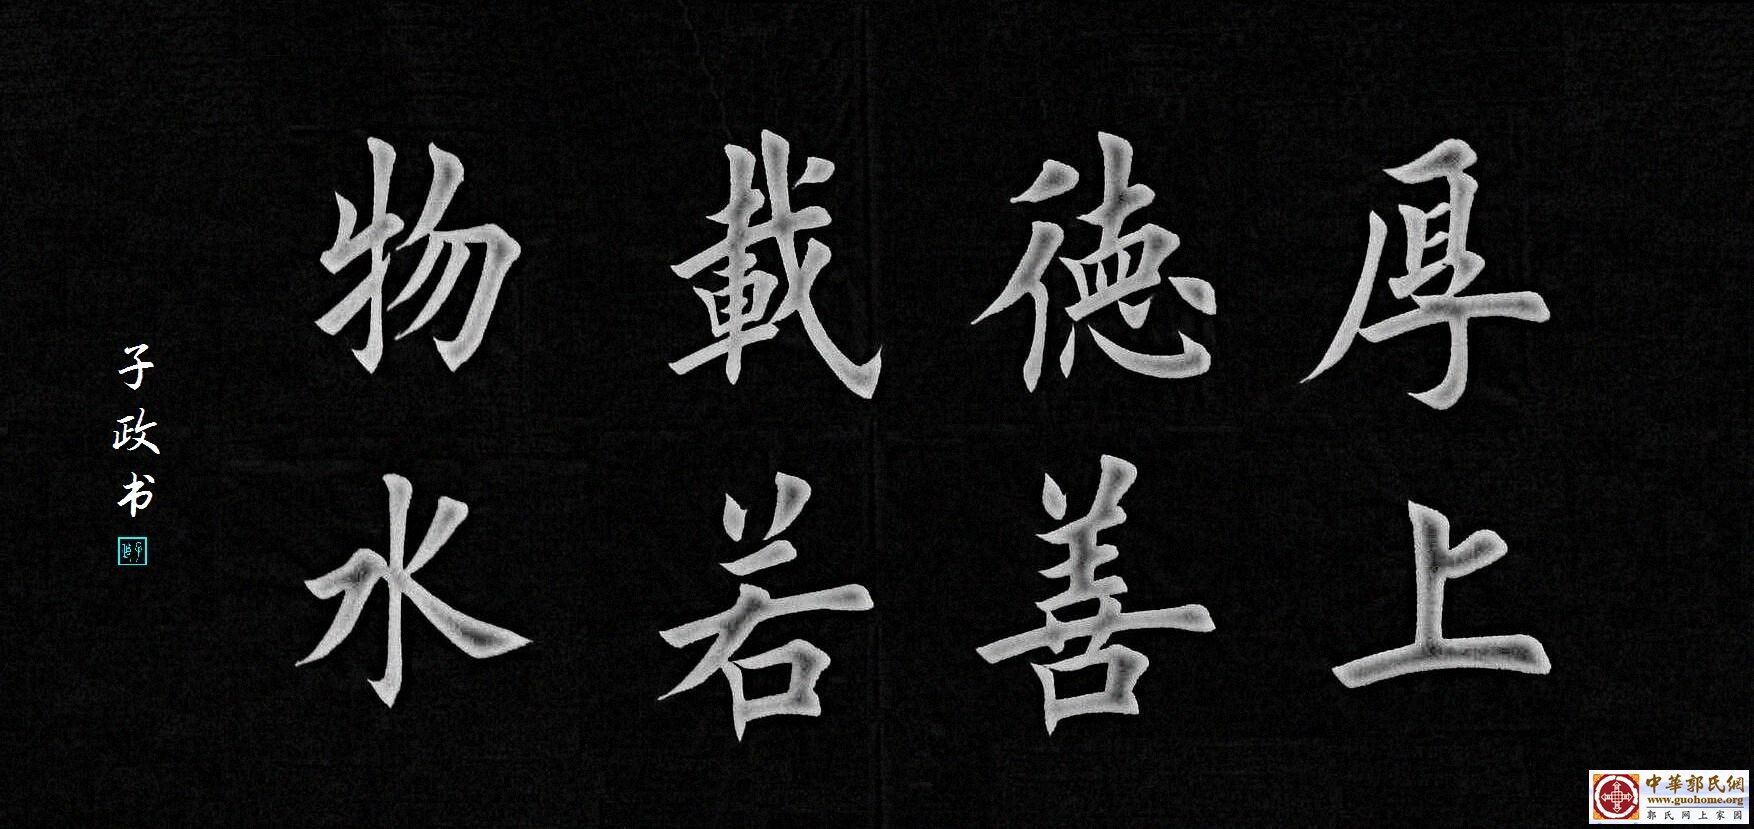 厚德載物
上善若水
子政书
中華郭氏網
www.guohome.org
郭氏网上家园